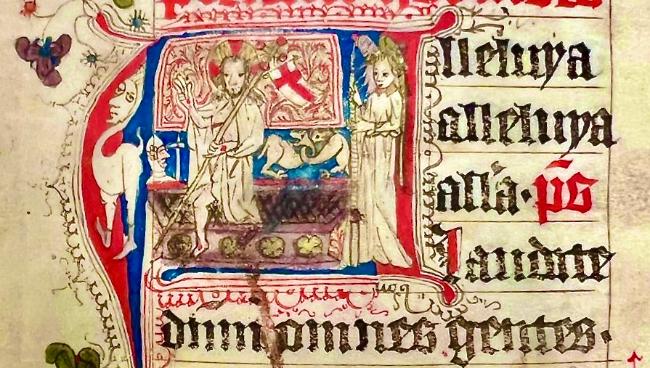 Alleluya
alleluya
alla· p̄s
Laudate
dnm omnes gentes.